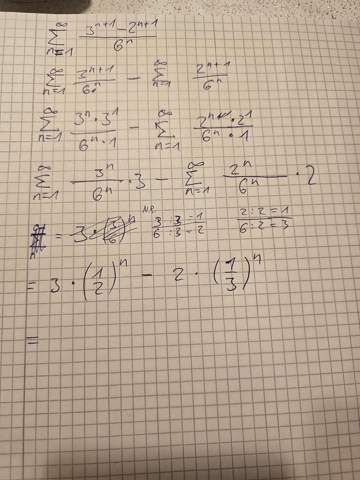 ∑_{n=1}^{∞} \frac{3^{n+1} - 2^{n+1}}{6^n}
∑_{n=1}^{∞} \frac{3^{n+1}}{6^n} - ∑_{n=1}^{∞} \frac{2^{n+1}}{6^n}
∑_{n=1}^{∞} \frac{3^n · 3^1}{6^n · 1} - ∑_{n=1}^{∞} \frac{2^n · 2^1}{6^n · 1}
∑_{n=1}^{∞} \frac{3^n}{6^n} · 3 - ∑_{n=1}^{∞} \frac{2^n}{6^n} · 2
= 3 · (\frac{3}{6})^n N.R. \frac{3 : 3 = 1}{6 : 3 = 2} \frac{2 : 2 = 1}{6 : 2 = 3}
= 3 · (\frac{1}{2})^n - 2 · (\frac{1}{3})^n
=